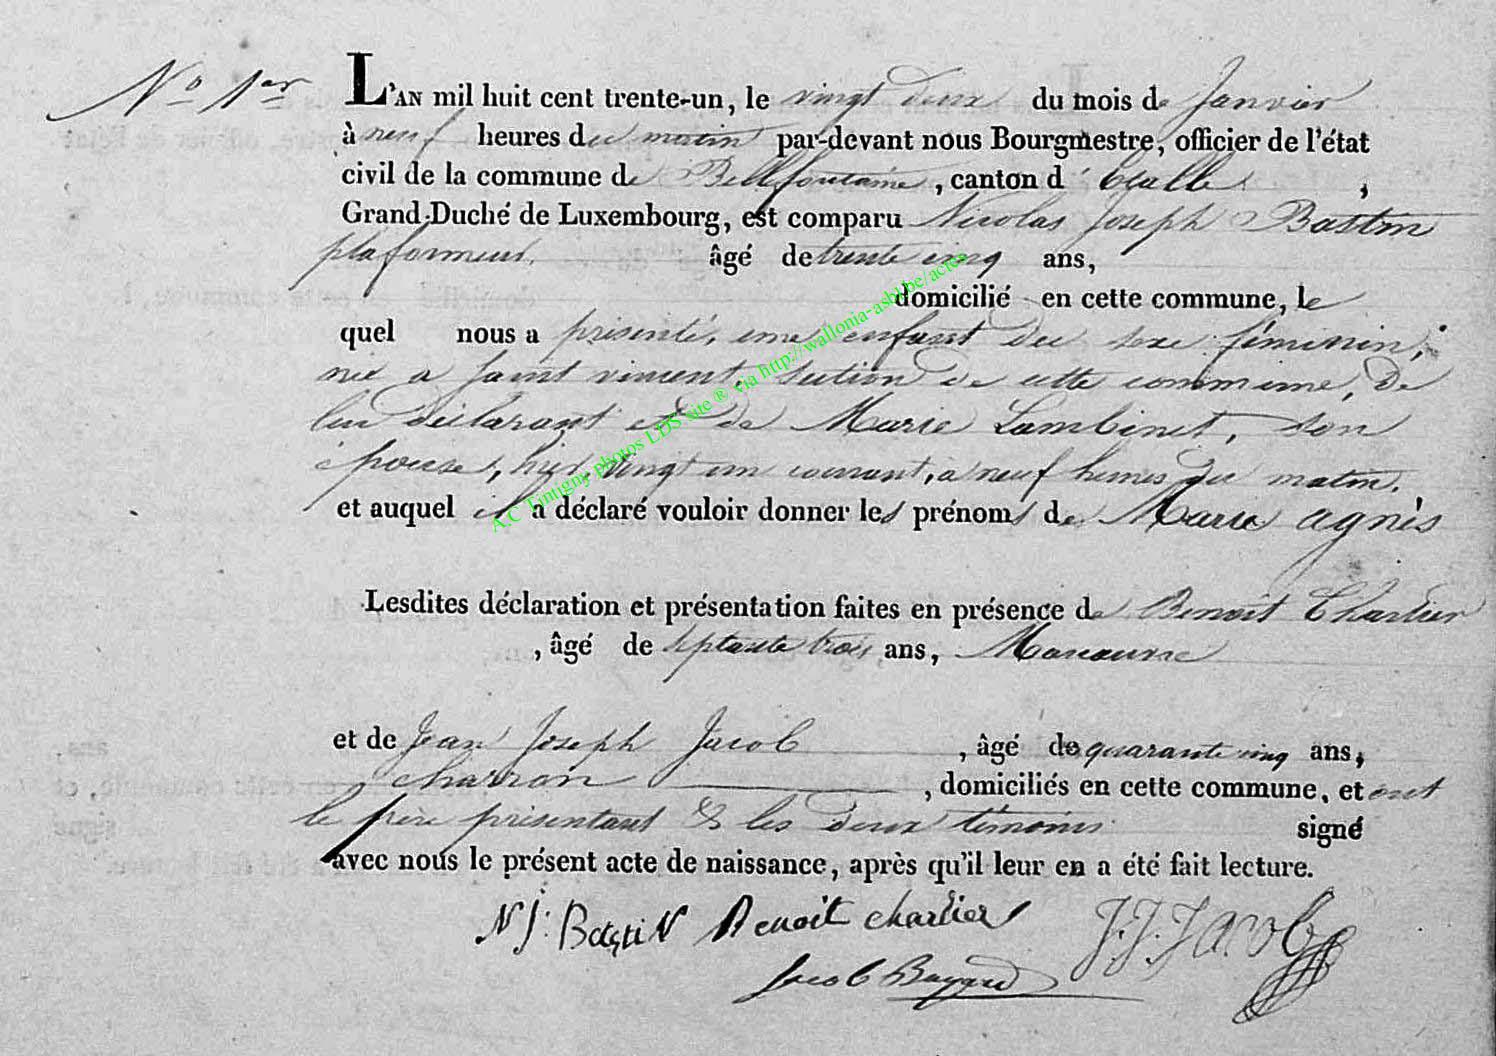 No 1er L'AN mil huit cent trente-un, le vingt deux du mois de Janvier
à neuf heures du matin par-devant nous Bourgmestre, officier de l'état
civil de la commune de Bellefontaine, canton d'Etalle,
Grand-Duché de Luxembourg, est comparu Nicolas Joseph Bastin
plafonneur, âgé de trente cinq ans,
domicilié en cette commune, le
quel nous a présenté, une enfant du sexe féminin,
née a Saint vincent, section de cette commune, de
lui déclarant et de Marie Lambinet, son
epouse, hyer, vingt un courant, a neuf heures du matin.
et auquel il a déclaré vouloir donner les prénoms de Marie agnès
Lesdites déclaration et présentation faites en présence de Benoit Charlier
, âgé de septante trois, ans, Manoeuvre
et de Jean Joseph Jacob, âgé de quarante cinq ans,
charron, domiciliés en cette commune, et ont
le père présentant & les deux témoins signé
avec nous le présent acte de naissance, après qu'il leur en a été fait lecture.
NJ: BastiN Benoit charlier J.J. Jacob
Jacob
A.C Tintigny photos LDS site ® via http://wallonia-asbl.be/actes